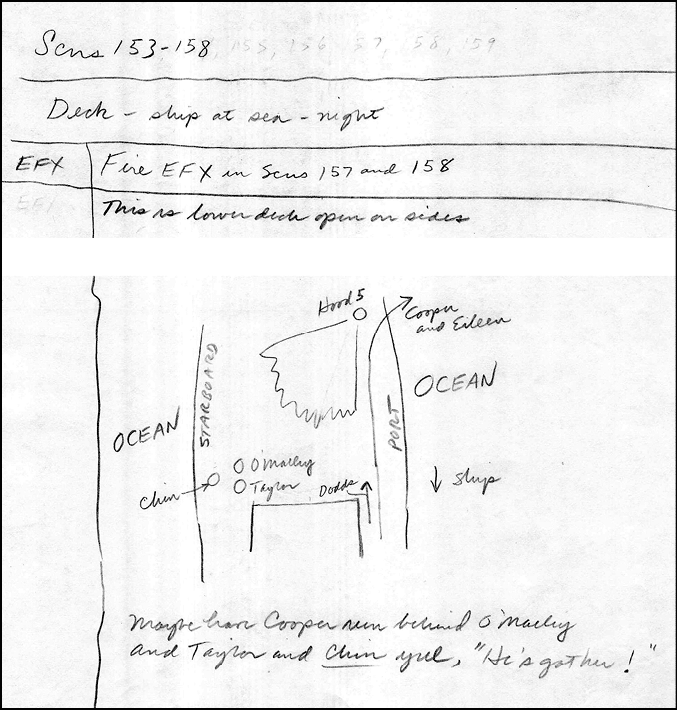 Scns 153-158, 155, 156, 57, 158, 159
Deck - ship at sea - night
EFX Fire EFX in Scns 157 and 158
EFX This is lower deck open on sides
Hood 5
Cooper
and Eileen
OCEAN
STARBOARD
OCEAN
PORT
O'Malley
Taylor
Chin
Dodds
Ship
Maybe have Cooper run behind O'Malley
and Taylor and Chin yell, "He's got her!"